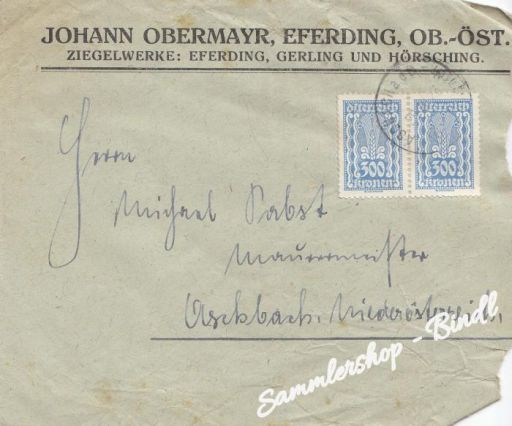 JOHANN OBERMAYR, EFERDING, OB.-ÖST.
ZIEGELWERKE: EFERDING, GERLING UND HÖRSCHING.
österreich österreich
300 300
kronen kronen
Herrn
Michael Pabst
Maurermeister
Aschbach. Niederösterreich.
Sammlershop - Bindl